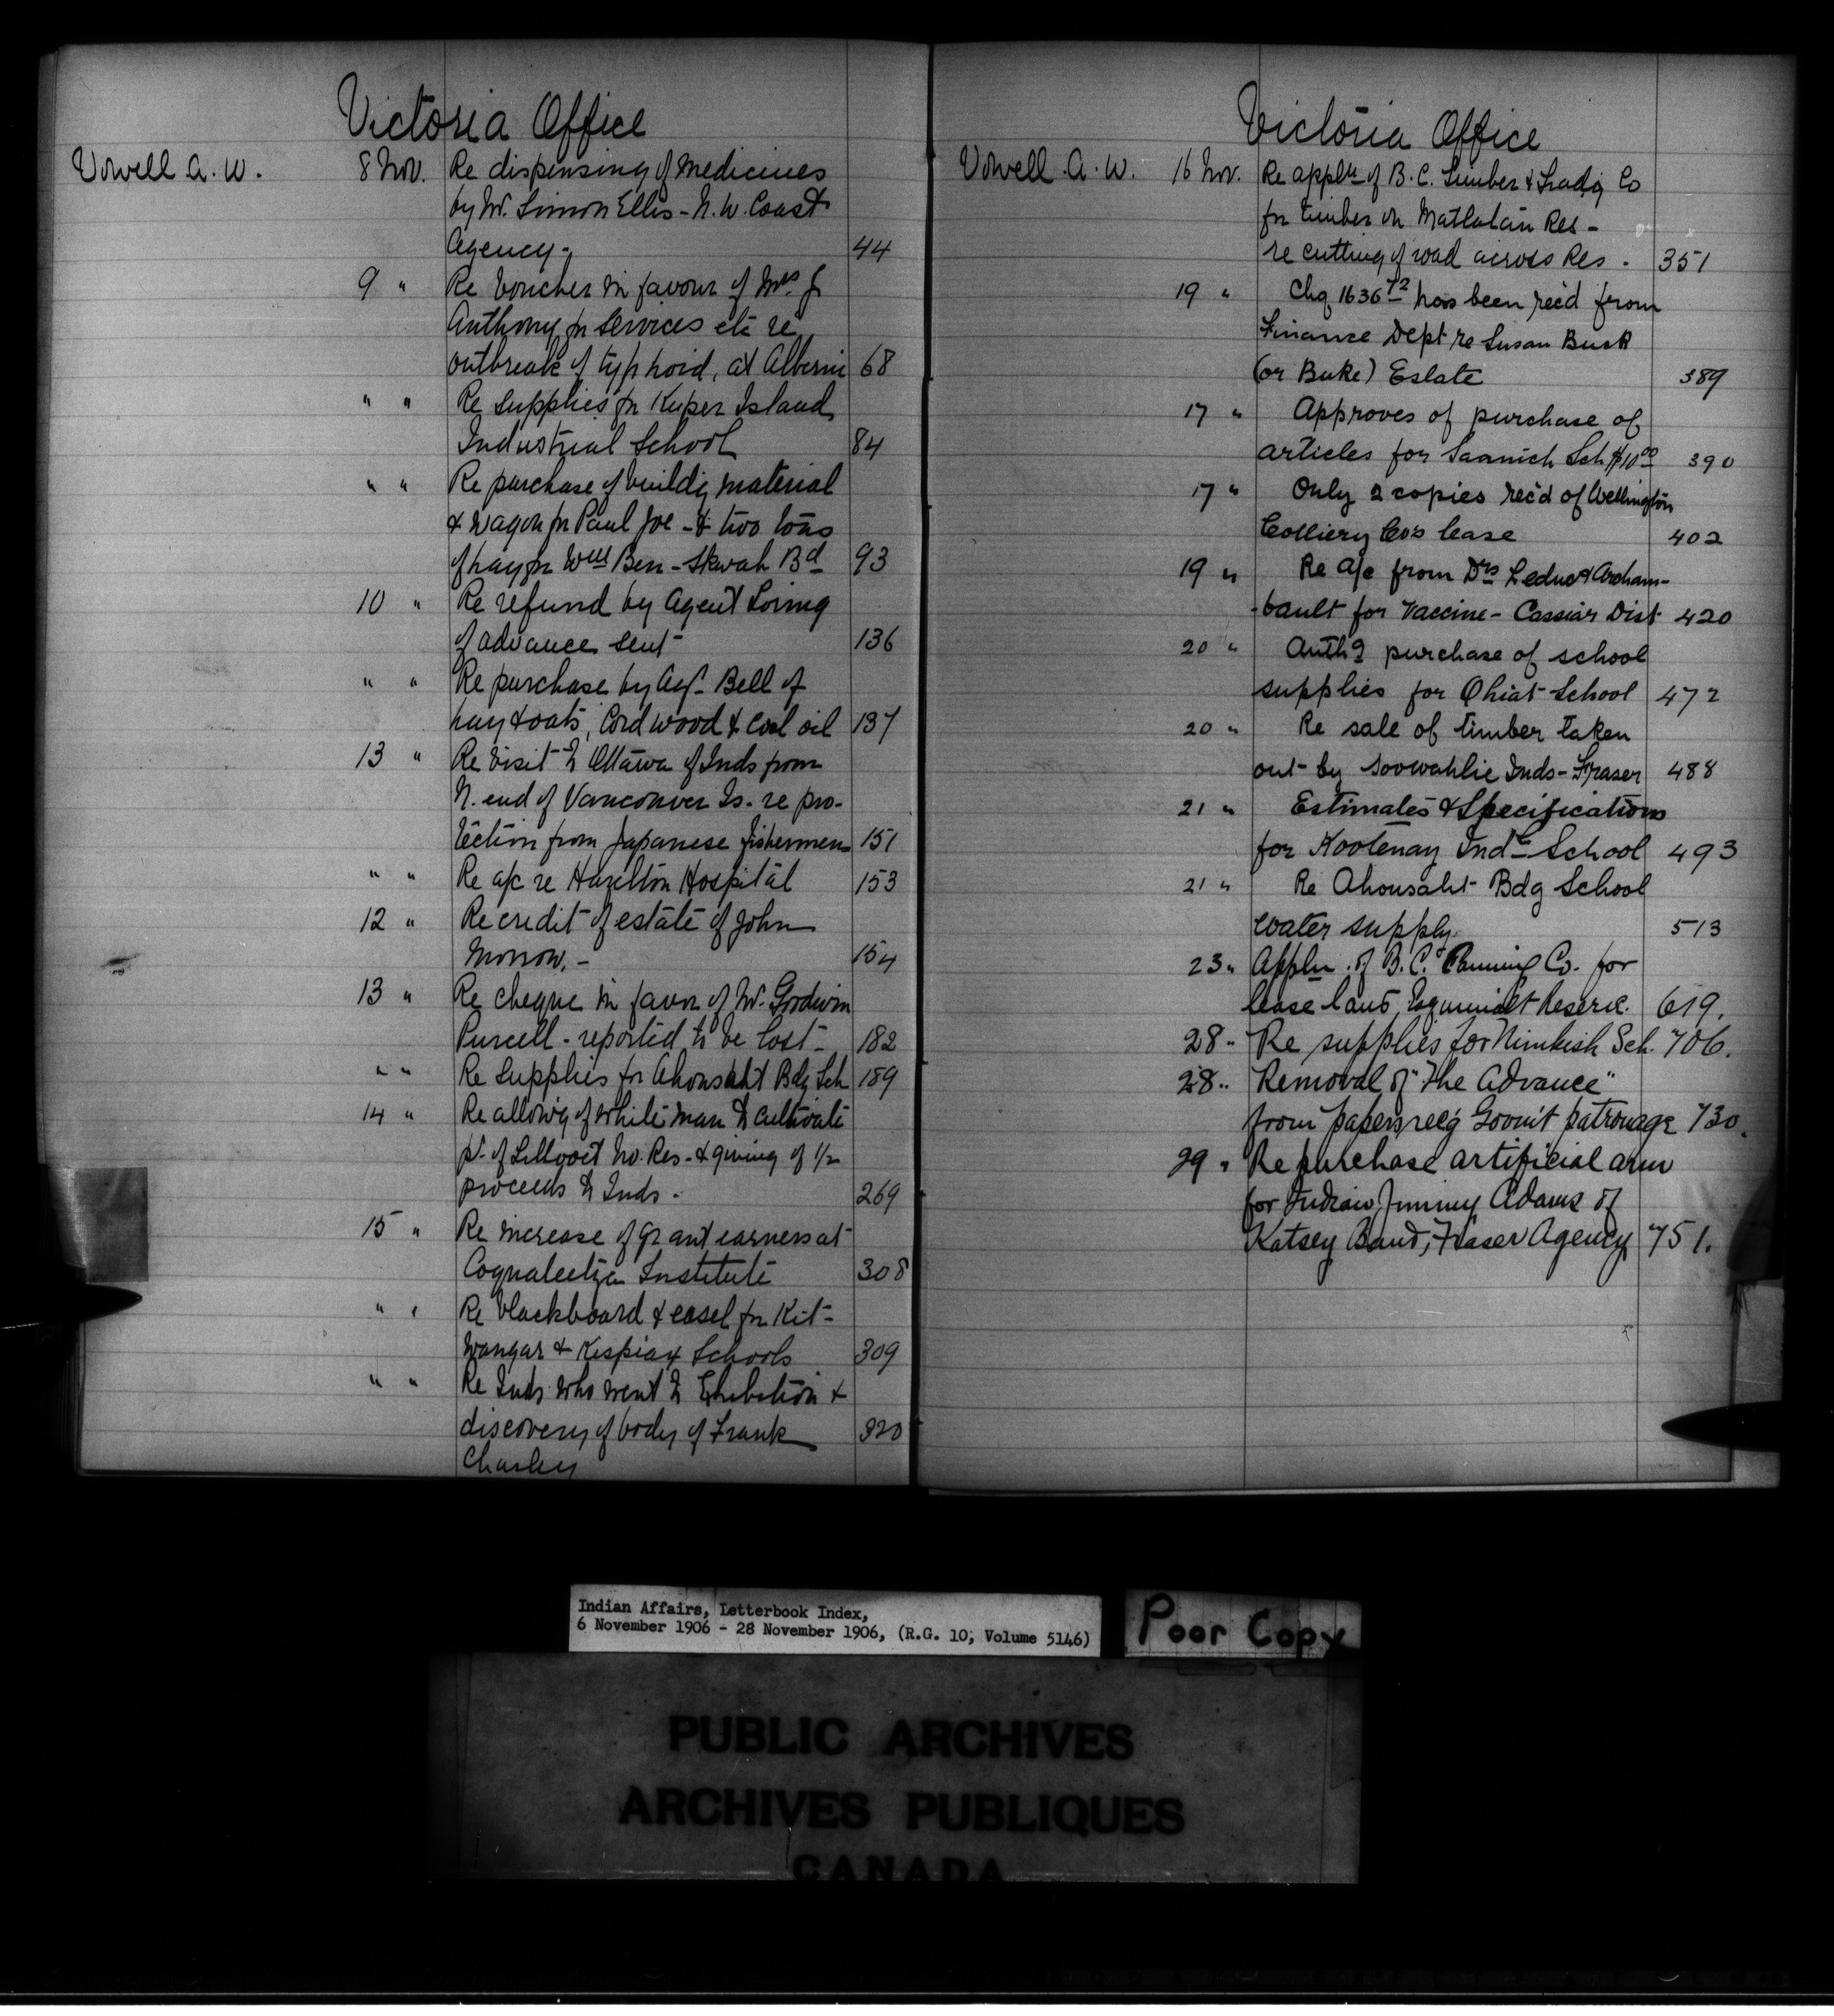 Victoria Office
Vowell A. W. 8 Nov. Re dispensing of medicines
by Mr. Simon Ellis - N. W. Coast
Agency - 44
9 " Re voucher in favour of Mrs. J.
Anthony for services etc re
outbreak of typhoid, at Alberni 68
" " Re supplies for Kuper Island
Industrial School 84
" " Re purchase of buildg material
& wagon for Paul Joe - & two tons
of hay for Wm Ben - Skwah Bd 93
10 " Re refund by Agent Loring
of advance sent 136
" " Re purchase by Agt Bell of
hay & oats, cord wood & coal oil 137
13 " Re visit to Ottawa of Inds from
N. end of Vancouver Is. re pro-
tection from Japanese fishermen 151
" " Re a/c re Hazelton Hospital 153
12 " Re credit of estate of John
Morrow. - 154
13 " Re cheque in favor of Mr. Goodwin
Purcell - reported to be lost - 182
" " Re supplies for Ahousaht Bdg Sch 189
14 " Re allowig of white man to cultivate
pt. of Lillooet No. Res. & giving of 1/2
proceeds to Inds - 269
15 " Re increase of grant earners at
Coqualeetza Institute 308
" " Re blackboard & easel for Kit-
wangar & Kispiax Schools 309
" " Re Inds who went to Exhibition &
discovery of body of Frank 320
Charley
Victoria Office
Vowell A. W. 16 Nov. Re appln of B. C. Timber & Tradg Co
for timber on Matlatan Res -
re cutting of road across Res - 351
19 " Chq 1636 72 has been rec'd from
Finance Dept re Susan Buck
(or Buke) Estate 389
17 " Approves of purchase of
articles for Saanich Sch $10 00 390
17 " Only 2 copies rec'd of Wellington
Colliery Co's lease 402
19 " Re a/c from Drs Leduc & Archam-
-bault for vaccine - Cassiar Dist 420
20 " Authg purchase of school
supplies for Ohiat School 472
20 " Re sale of timber taken
out by Soowahlie Inds - Fraser 488
21 " Estimates & Specifications
for Kootenay Indl School 493
21 " Re Ahousaht Bdg School
water supply. 513
23 " Appln. of B. C. Canning Co. for
lease land, Esquimalt Reserve. 619.
28 " Re supplies for Nimkish Sch. 706.
28 " Removal of "The Advance"
from papers recg Govm't patronage 730.
29 " Re purchase artificial arm
for Indian, Jimmy Adams of
Katsey Band, Fraser Agency 751.
Indian Affairs, Letterbook Index,
6 November 1906 - 28 November 1906, (R.G. 10, Volume 5146)
Poor Copy
PUBLIC ARCHIVES
ARCHIVES PUBLIQUES
CANADA